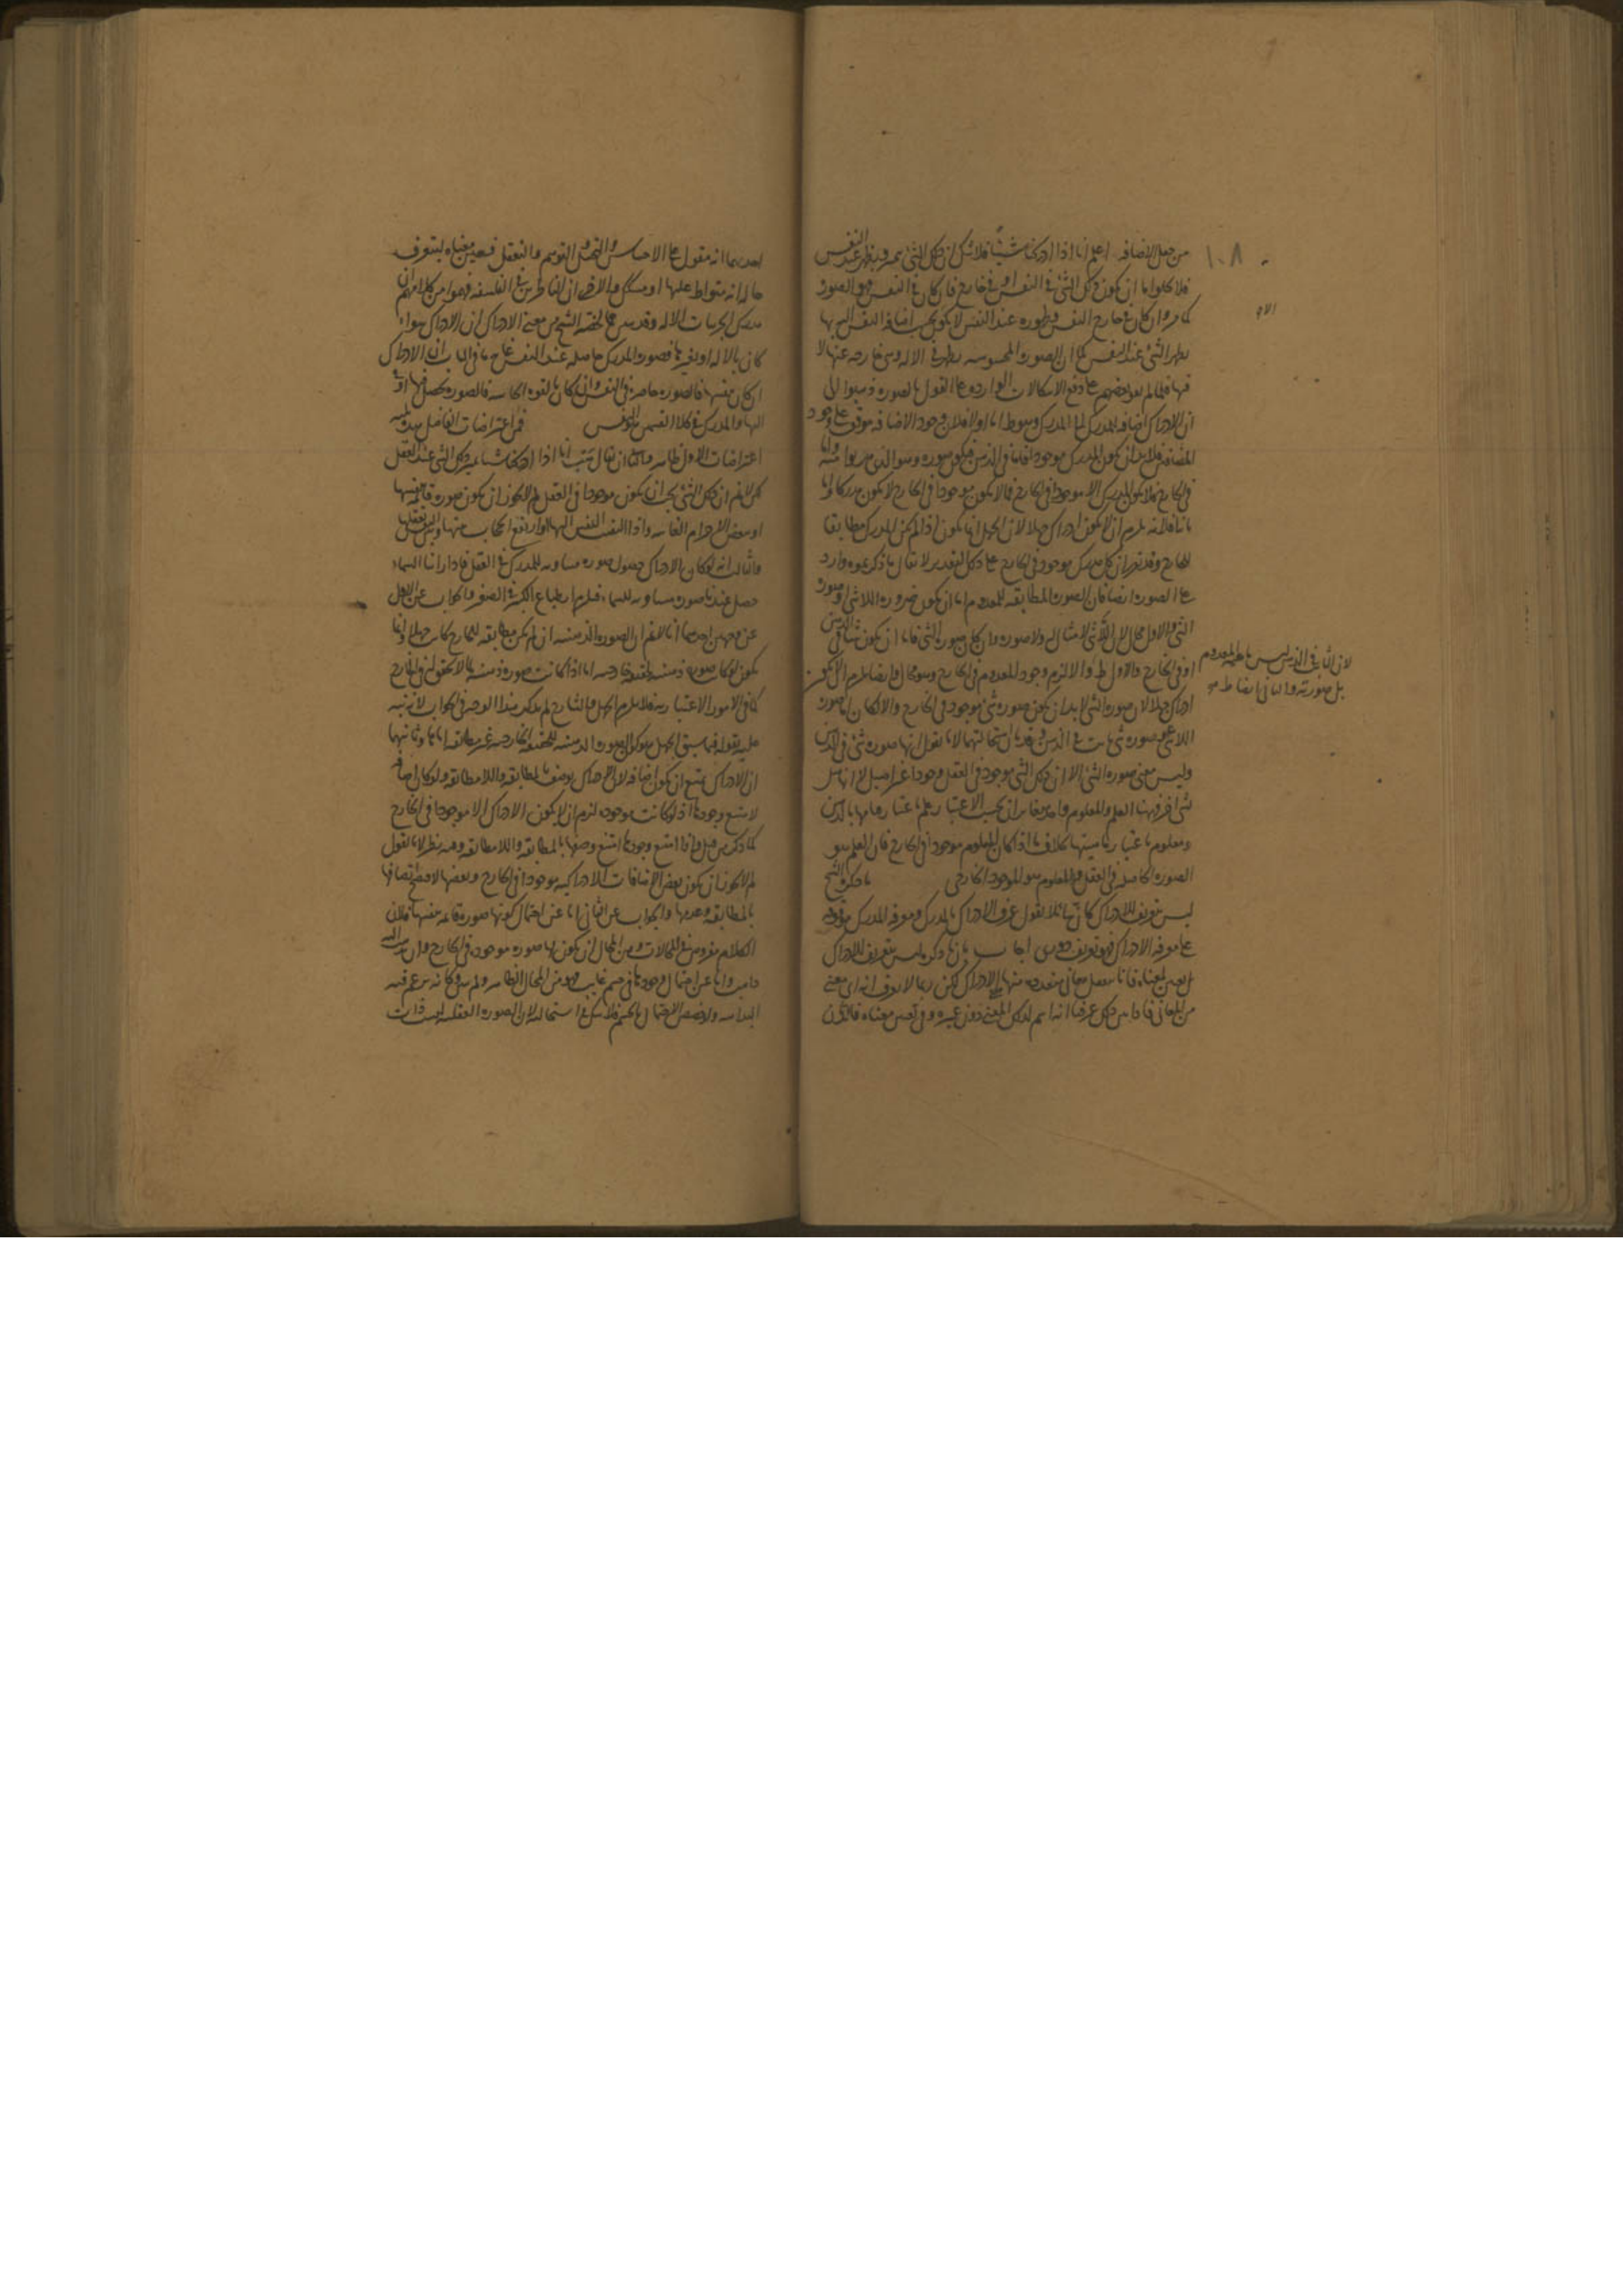 من جعل الاضافه اعلم انا اذا ادركنا شيئاً فلا شك ان ذلك الشئ يتميز ويظهر عند النفس
فلا يخلوا اما ان يكون ذلك الشئ فى النفس او فى خارج فان كان فى النفس فهو الصوره
كما مر وان كان فى خارج النفس فظهوره عند النفس لا يكون بحسب اضافه النفس اليه بها
يظهر الشئ عند النفس كما ان الصوره المحسوسه يظهر فى الاله وهى خارجه عنها لا
فيها فلما لم بعضهم على دفع الاشكالات الوارده على القول بالصوره ذهبوا الى
ان الادراك اضافه المدرك الى المدرك وهو باطل اما اولا فلان وجود الاضافه موقوف على وجود
المضاف فلابد ان يكون المدرك موجودا فاما فى الذهن فيكون صوره وهو الذى هربوا منه واما
فى الخارج فلا يكون المدرك الا موجودا فى الخارج فما لا يكون موجودا فى الخارج لا يكون مدركا واما
ثانيا فلانه يلزم ان لا يكون ادراك جهلا لان الجهل انما يكون اذا لم يكن المدرك مطابقا
للخارج وقد تقرر ان كل مدرك موجود فى الخارج على ذلك التقدير لا يقال ما ذكرتموه وارد
على الصوره ايضا فان الصوره المطابقه للمعدوم اما ان يكون صوره اللاشئ او صوره
الشئ والاول محال لان اللاشئ لا مثال له ولا صوره وان كان صوره الشئ فاما ان يكون شيئا فى الذهن
او فى الخارج والاول ط والا لزم وجود المعدوم فى الخارج وهو محال وايضا يلزم ان لا يكون
ادراك جهلا لان صوره الشئ لابد ان يكون صوره شئ موجود فى الخارج والا لكان اما صوره
اللاشئ او صوره شئ ثابت فى الذهن وقد بان استحالتهما لانا نقول انها صوره شئ فى الذهن
وليس معنى صوره الشئ الا ان ذلك الشئ موجود فى العقل وجودا غير اصيل لا انها مثل
شئ اخر فهنا العلم والمعلوم واحد متغايران بحسب الاعتبار علم باعتبار قيامها بالذهن
ومعلوم باعتبار ماهيتها بخلاف ما اذا كان المعلوم موجودا فى الخارج فان العلم هو
الصوره الحاصله فى العقل والمعلوم هو الموجود الخارجى ما ذكره الشيخ
ليس تعريف للادراك لئلا يقول عرف الادراك بالمدرك ومعرفه المدرك موقوفه
على معرفه الادراك فهو تعريف دورى اجاب بان ما ذكره ليس تعريف للادراك
بل تعيين لمعناه فانا نعقل معانى متعدده منها الادراك لكن ربما لا يعرف انه اى معنى
من المعانى فاذا عين ذلك عرفنا انه اسم لذلك المعنى دون غيره وفى تعيين معناه فائدتان
لان الثابت فى الذهن ليس ماهيه المعدوم
بل صورته والثانى ايضا ط
١٠٨
احديهما انه مقول على الاحساس والتخيل والتوهم والتعقل فتعيين معناه ليتعرف
حاله انه متواطٍ عليها او مشكك والاخرى ان الناظرين فى الفلسفه فهموا من كلامهم ان
مدرك الجزئيات الاله وقد تبين مما لخصه الشيخ من معنى الادراك ان الادراك سواء
كان بالاله او بغيرها فصوره المدرك حاصله عند النفس غايه ما فى الباب ان الادراك
ان كان بنفسها فالصوره حاضره فى النفس وان كان بالقوه الحاسه فالصوره تحصل فيها او فى
التها والمدرك فى كلا القسمين النفس فمن اعتراضات الفاضل بهذه
اعتراضات الاول ان يقال هب انا اذا ادركنا شيئا يتميز ذلك الشئ عند العقل
لكن لا نم ان ذلك الشئ يجب ان يكون موجودا فى العقل لم لا يجوز ان يكون صوره قائمه بنفسها
او ببعض الاجرام الغائبه واذا التفت النفس اليها وارتفع الحجاب بينها وبين العقل
والثالث انه لو كان الادراك حصول صوره مساويه للمدرك فى العقل فاذا راينا السماء
حصل عندنا صوره مساويه للسماء فيلزم انطباع الكبير فى الصغير والجواب عن الاول
عن وجهين احدهما انا لا نم ان الصوره الذهنيه ان لم يكن مطابقه للخارج كانت جهلا وانما
يكون لو كانت صوره ذهنيه لحقيقه خارجيه اما اذا كانت صوره ذهنيه لما لا تحقق له فى الخارج
كما فى الامور الاعتباريه فلا يلزم الجهل والشارح لم يذكر هذا الوجه فى الجواب لانه نبه
عليه بقوله فيما سبق الجهل هو كون الصوره الذهنيه للحقيقه الخارجيه غير مطابقه اياها وثانيهما
ان الادراك يمتنع ان يكون اضافه لان الادراك يوصف بالمطابقه واللامطابقه ولو كان اضافه
لامتنع وجودها اذ لو كانت موجوده لزم ان لا يكون الادراك الا موجودا فى الخارج
كما ذكر من قبل واذا امتنع وجودها امتنع وصفها بالمطابقه واللامطابقه وفيه نظر لانا نقول
لم لا يجوز ان يكون بعض الاضافات الادراكيه موجودا فى الخارج وبعضها لا فيصح اتصافها
بالمطابقه وعدمها والجواب عن الثانى اما عن احتمال كونها صوره قائمه بنفسها فلان
الكلام مفروض فى المحالات ومن المحال ان يكون لها صوره موجوده فى الخارج وان ذهب اليه
ذاهب واما عن احتمال وجودها فى جسم غايب فهو من المحال الظاهر
البداهه ولو خصص الاحتمال بالجسم فلا شك فى استحالته لان الصوره العقليه ليست ذات